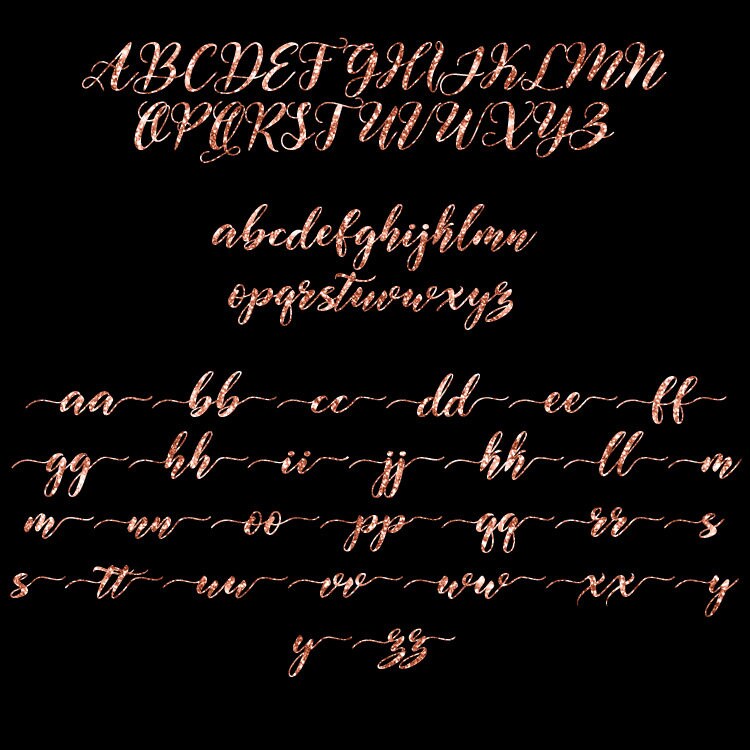 ABCDEFGHIJKLMN
OPQRSTUVWXYZ
abcdefghijklmn
opqrstuvwxyz
aa bb cc dd ee ff
gg hh ii jj kk ll m
m nn oo pp qq rr s
s tt uu vv ww xx y
y zz